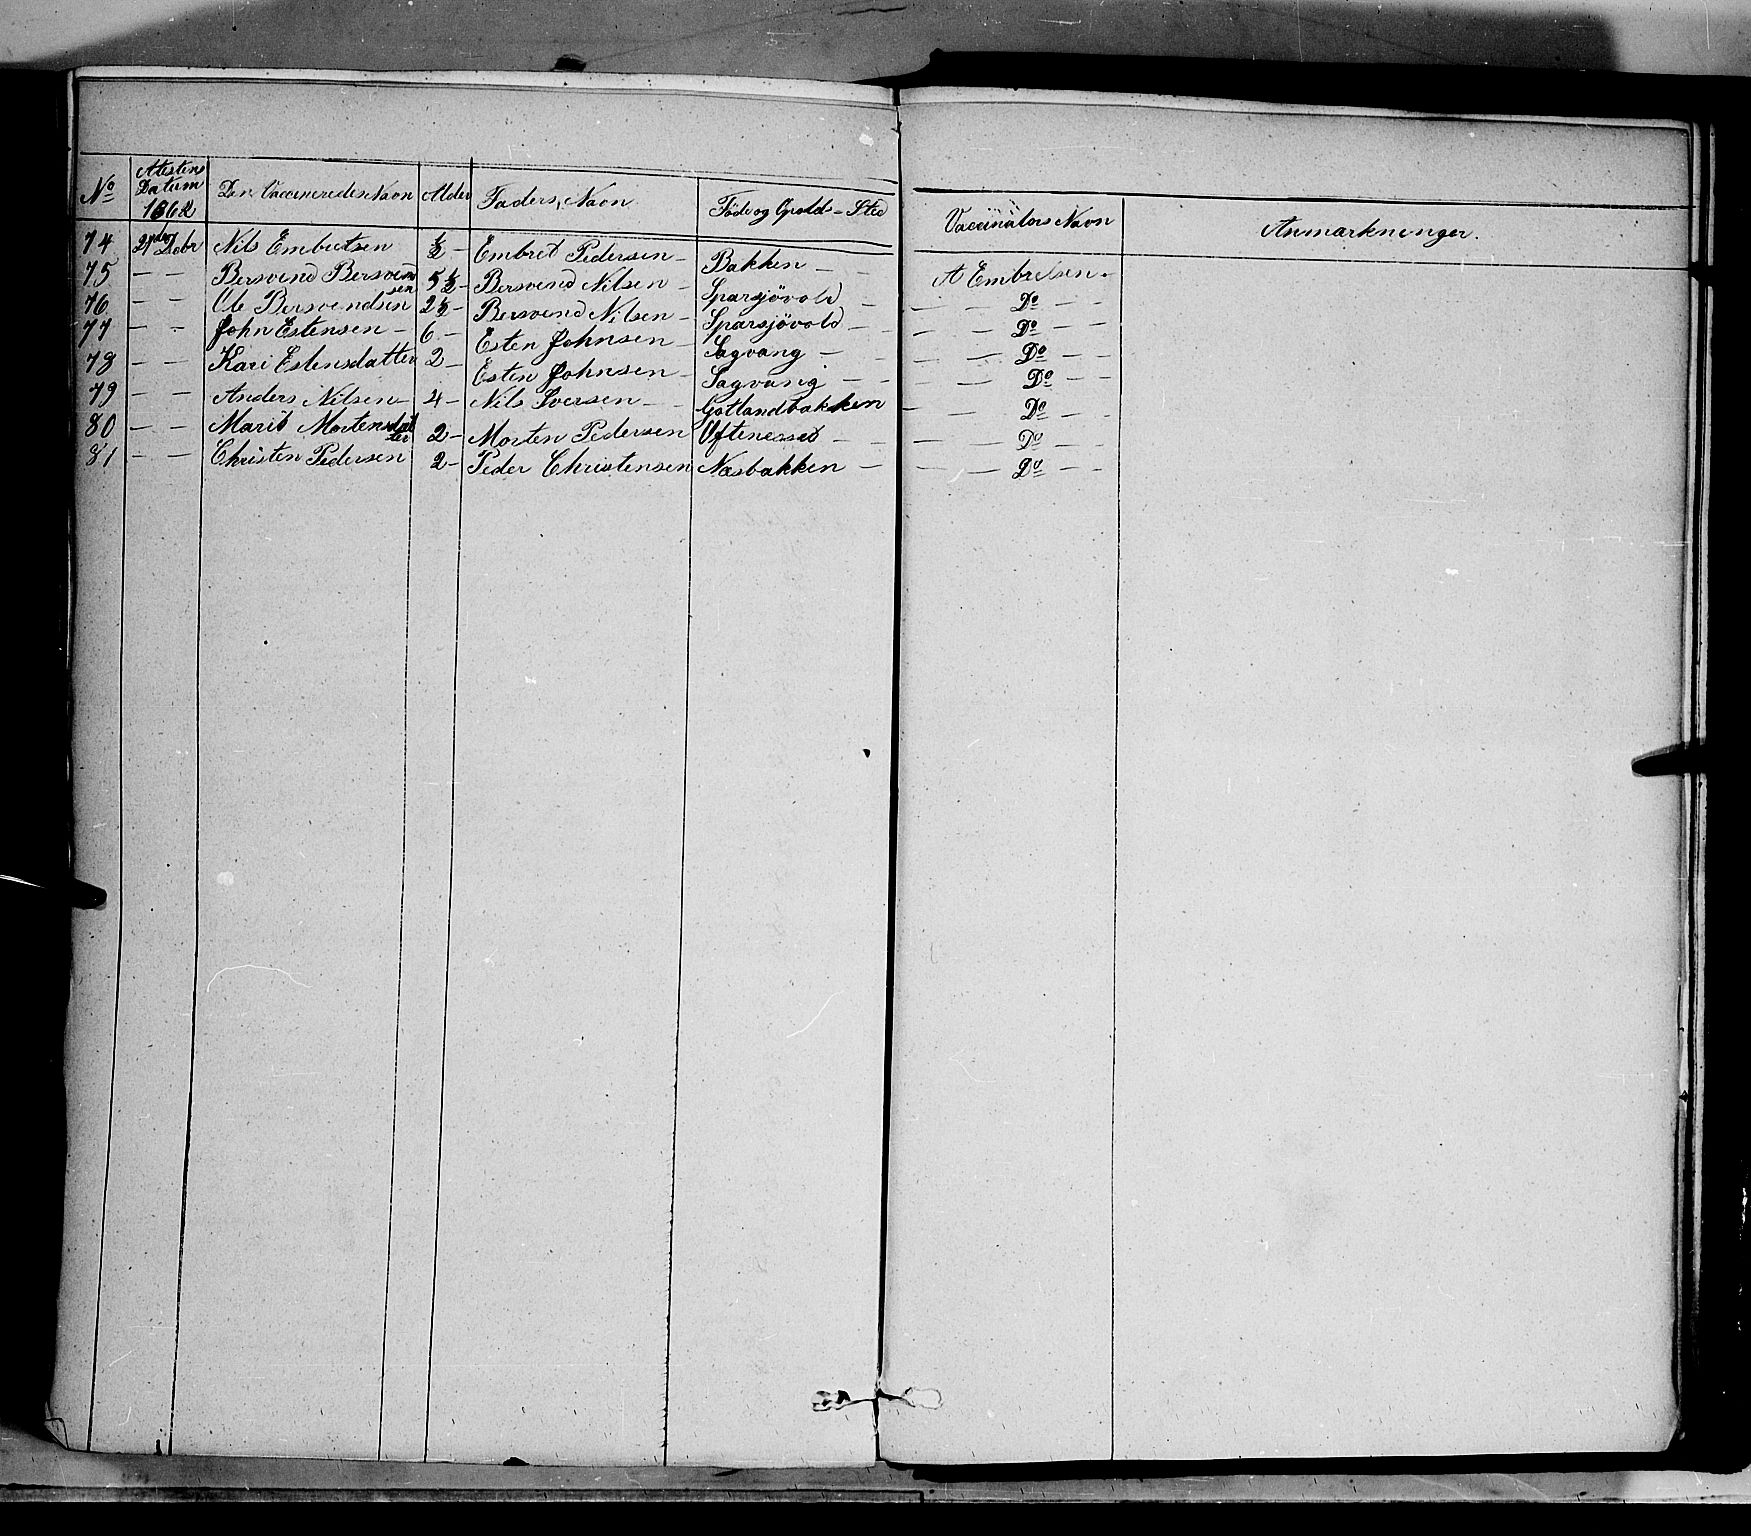 No Attestens Datum 1862 Den Vaccineredes Navn Alder Faders Navn Föde og Opold-Sted Vaccinators Navn Anmærkninger.
74 Debr Nils Embretsen ½ - Embret Pedersen - Bakken - A Embretsen -
75 - - Bersvend Bersvendsen 5½ - Bersvend Nilsen - Sparsjövold - - - Do - -
76 - - Ole Bersvendsen 2½ - Bersvend Nilsen - Sparsjövold - - - Do - -
77 - - John Estensen - 6 - Esten Johnsen - Sagvang - - - Do - -
78 - - Kari Estensdatter 2 - Esten Johnsen - Sagvang - - - Do - -
79 - - Anders Nilsen - 4 - Nils Iversen - Gotlandbakken - - Do - -
80 - - Marit Mortensdatter 2 - Morten Pedersen - - - Do - -
81 - - Christen Pedersen 2 - Peder Christensen Næsbakken - - - Do - -